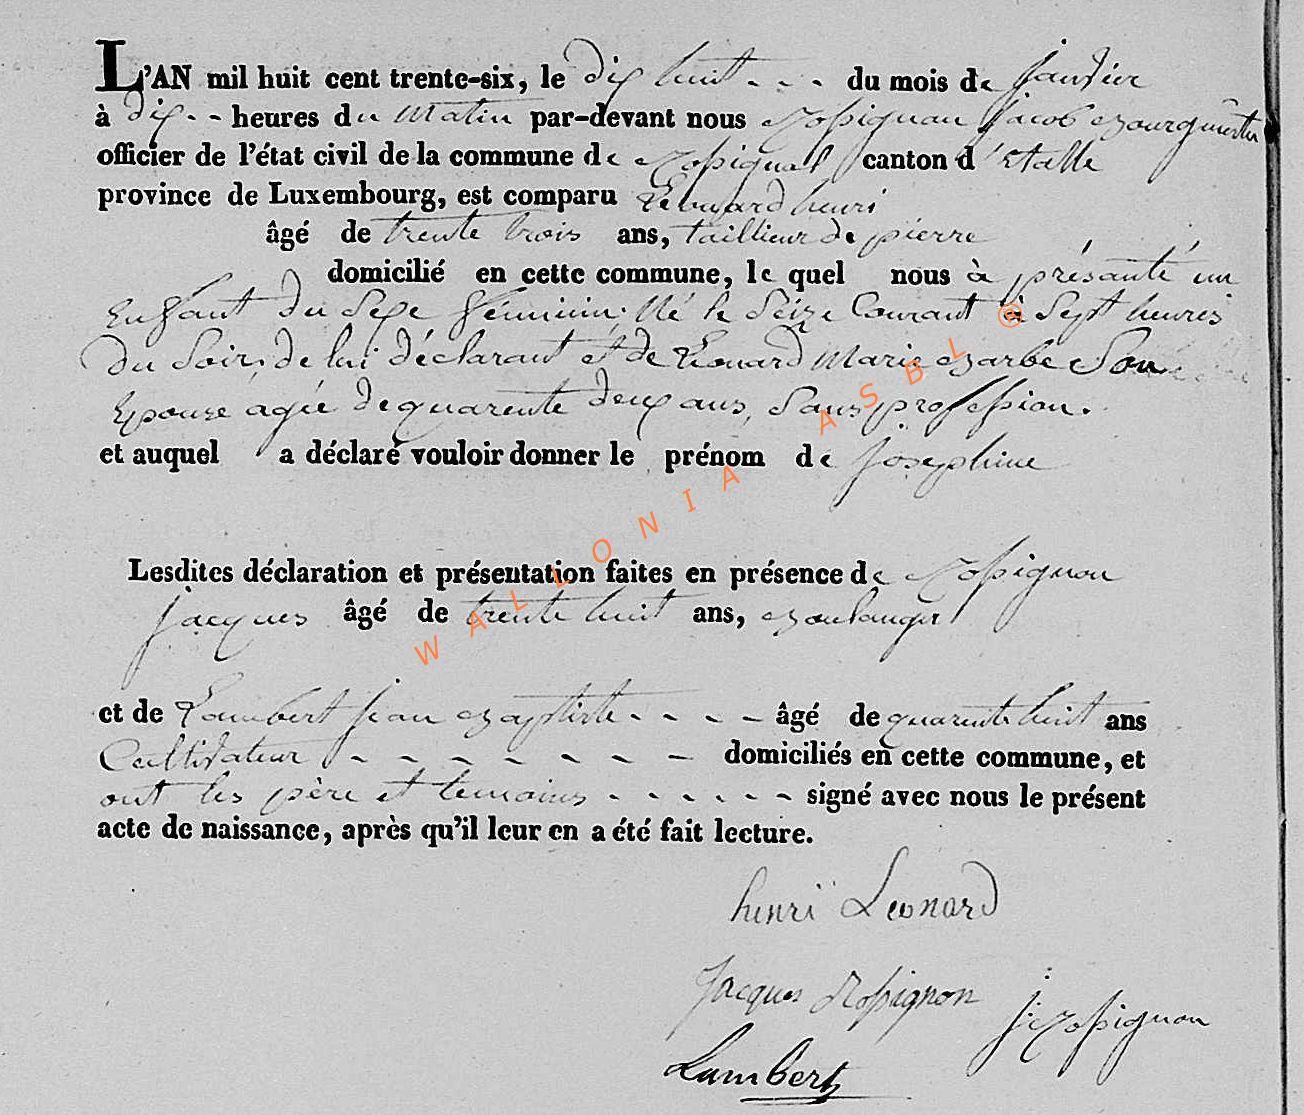 L'AN mil huit cent trente-six, le dix huit - - - du mois de janvier
à dix - - heures du matin par-devant nous Rossignon jacob Bourguimetre
officier de l'état civil de la commune de Rossignol canton d'Etalle
province de Luxembourg, est comparu Léonard henri
âgé de trente trois ans, taillieur de pierre
domicilié en cette commune, le quel nous à présanté un
Enfant du Sexe féminin. Né le Seize Courant à Sept heures
du Soir. de lui déclarant et de Marie Barbe Son
Epouse agée de quarente deux ans, Sans profession.
et auquel a déclaré vouloir donner le prénom de josephine
Lesdites déclaration et présentation faites en présence de Rossignon
jacques âgé de trente huit ans, Boulanger
et de Lambert jean Baptiste - - - - âgé de quarente huit ans
Cultivateur - - - - - - - domiciliés en cette commune, et
ont les père et temoins - - - - - - signé avec nous le présent
acte de naissance, après qu'il leur en a été fait lecture.
henri Leonard
jacques Rossignon
j: Rossignon
Lambert
© WALLONIA ASBL